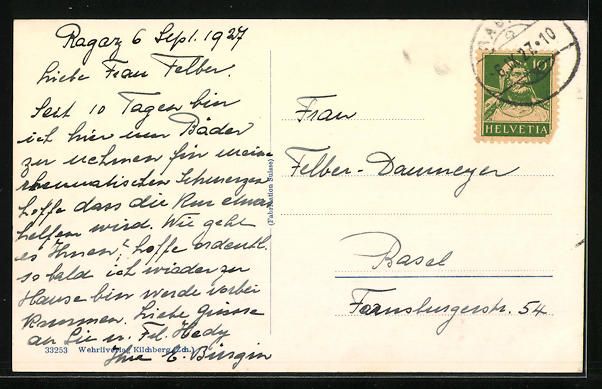 Ragaz 6 Sept. 1927
Liebe Frau Felber.
Seit 10 Tagen bin
ich hier um Bäder
zu nehmen für meine
rheumatischen Schmerzen
hoffe dass die Kur etwas
helfen wird. Wie geht
es Ihnen? hoffe ordentl.
sobald ich wieder zu
Hause bin werde vorbei
kommen. Liebe Grüsse
an Sie u. Frl. Hedy
Ihre E. Bürgin
33253 Wehrliverlag Kilchberg (Zch.)
(Fabrikation Suisse)
10
HELVETIA
27.10
Frau
Felber-Daumeyer
Basel
Farnsburgerstr. 54